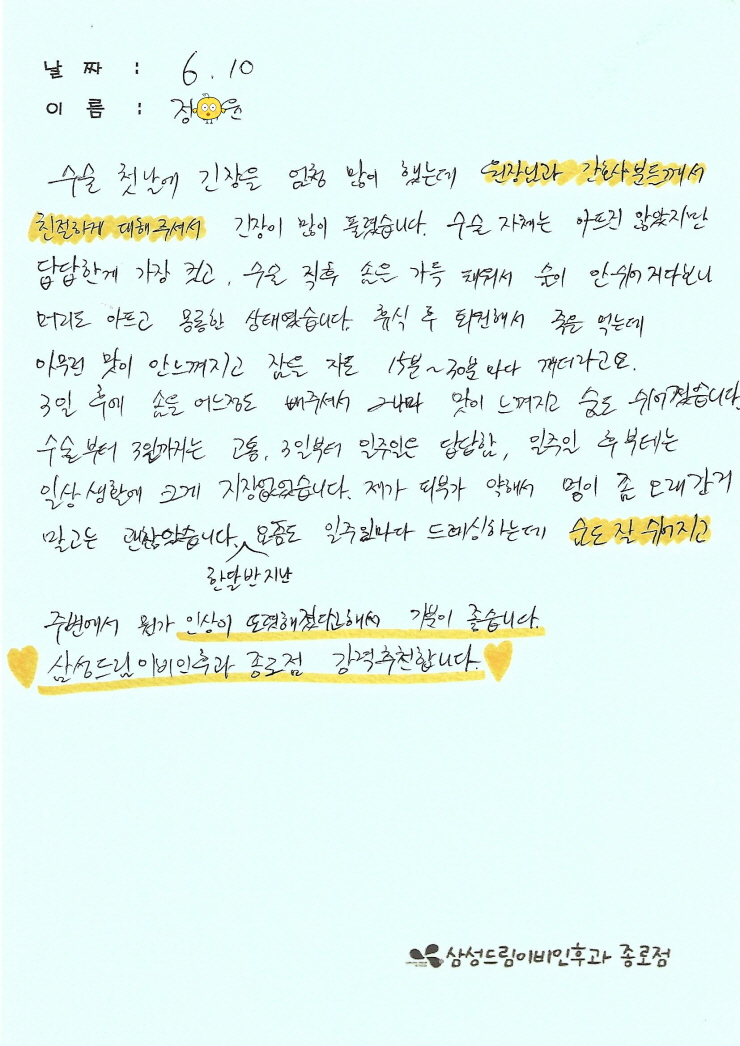 날 짜 : 6. 10
이 름 : 정 윤
수술 첫날에 긴장을 엄청 많이 했는데 원장님과 간호사분들께서
친절하게 대해주셔서 긴장이 많이 풀렸습니다. 수술 자체는 아프진 않았지만
답답한게 가장 컸고, 수술 직후 솜을 가득 채워서 숨이 안쉬어지다보니
머리도 아프고 몽롱한 상태였습니다. 휴식 후 퇴원해서 죽을 먹는데
아무런 맛이 안느껴지고 잠을 자도 15분~30분마다 깨더라고요.
3일 후에 솜을 어느정도 빼주셔서 그나마 맛이 느껴지고 숨도 쉬어졌습니다
수술부터 3일까지는 고통, 3일부터 일주일은 답답함, 일주일 후부터는
일상생활에 크게 지장없었습니다. 제가 피부가 약해서 멍이 좀 오래간거
말고는 괜찮았습니다. 요즘도 일주일마다 드레싱하는데 숨도 잘 쉬어지고
한달반지난
주변에서 뭔가 인상이 또렷해졌다고해서 기분이 좋습니다.
삼성드림이비인후과 종로점 강력추천합니다.
삼성드림이비인후과 종로점